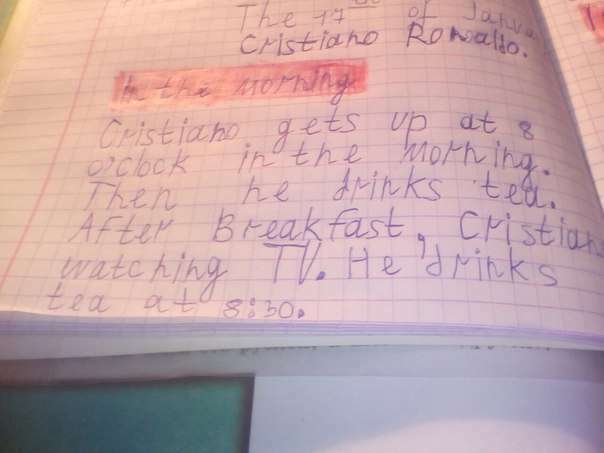 The 17 of Janua
Cristiano Ronaldo.
In the morning
Cristiano gets up at 8
o'clock in the morning.
Then he drinks tea.
After Breakfast, Cristian
watching TV. He drinks
tea at 8:30.